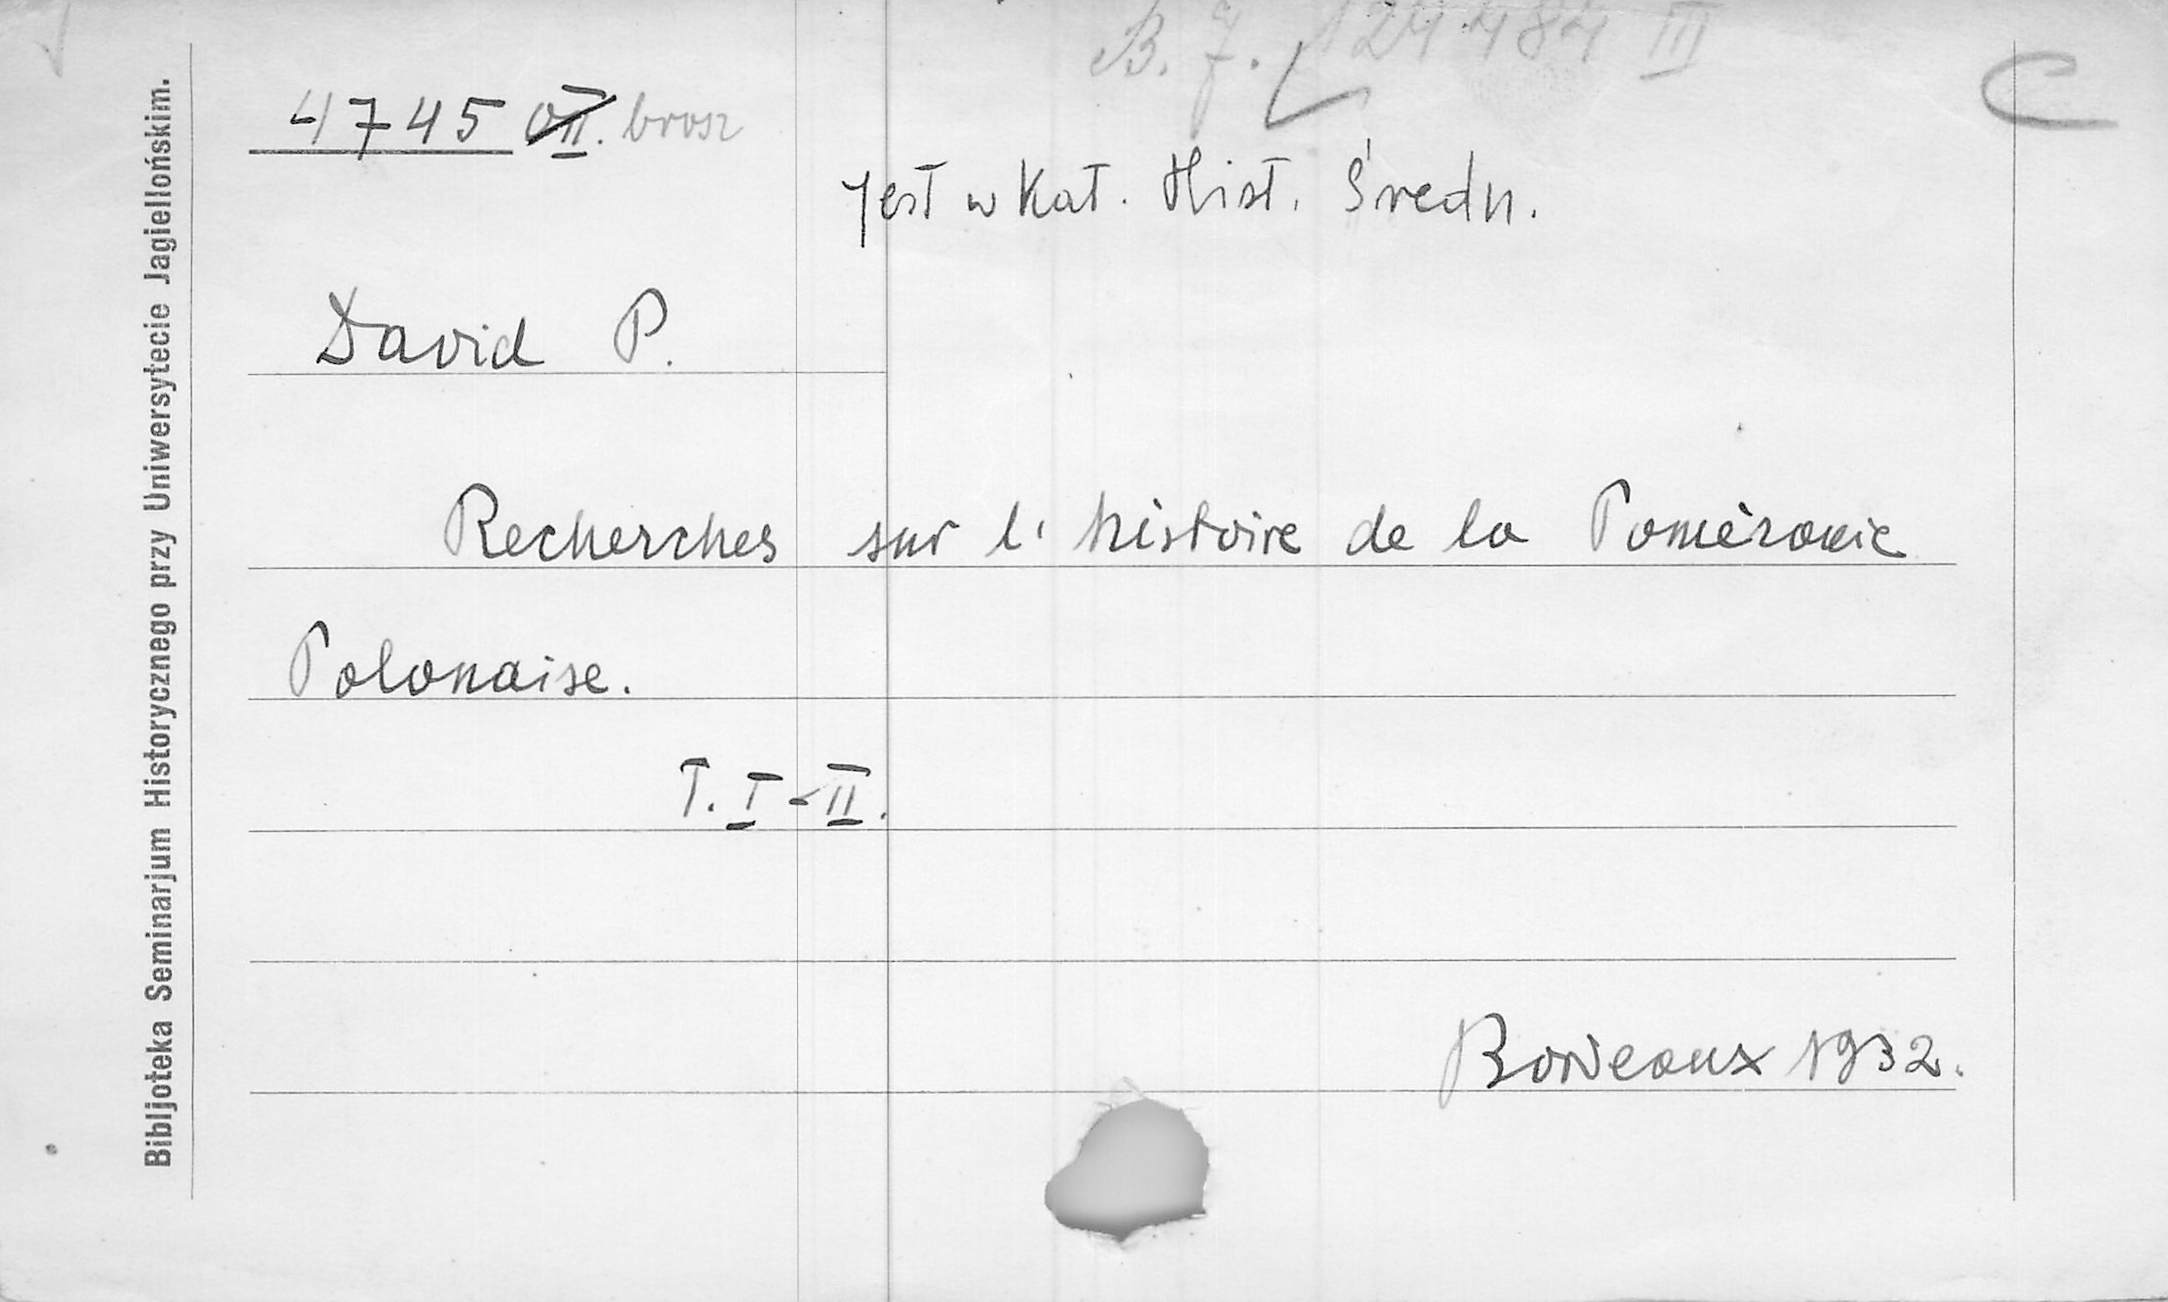 B. J. 124484 III
C
4745 II. brosz
Jest w Kat. Hist. Średn.
David P.
Recherches sur l'histoire de la Poméranie
Polonaise.
T. I-II.
Bordeaux 1932.
Bibljoteka Seminarjum Historycznego przy Uniwersytecie Jagiellońskim.